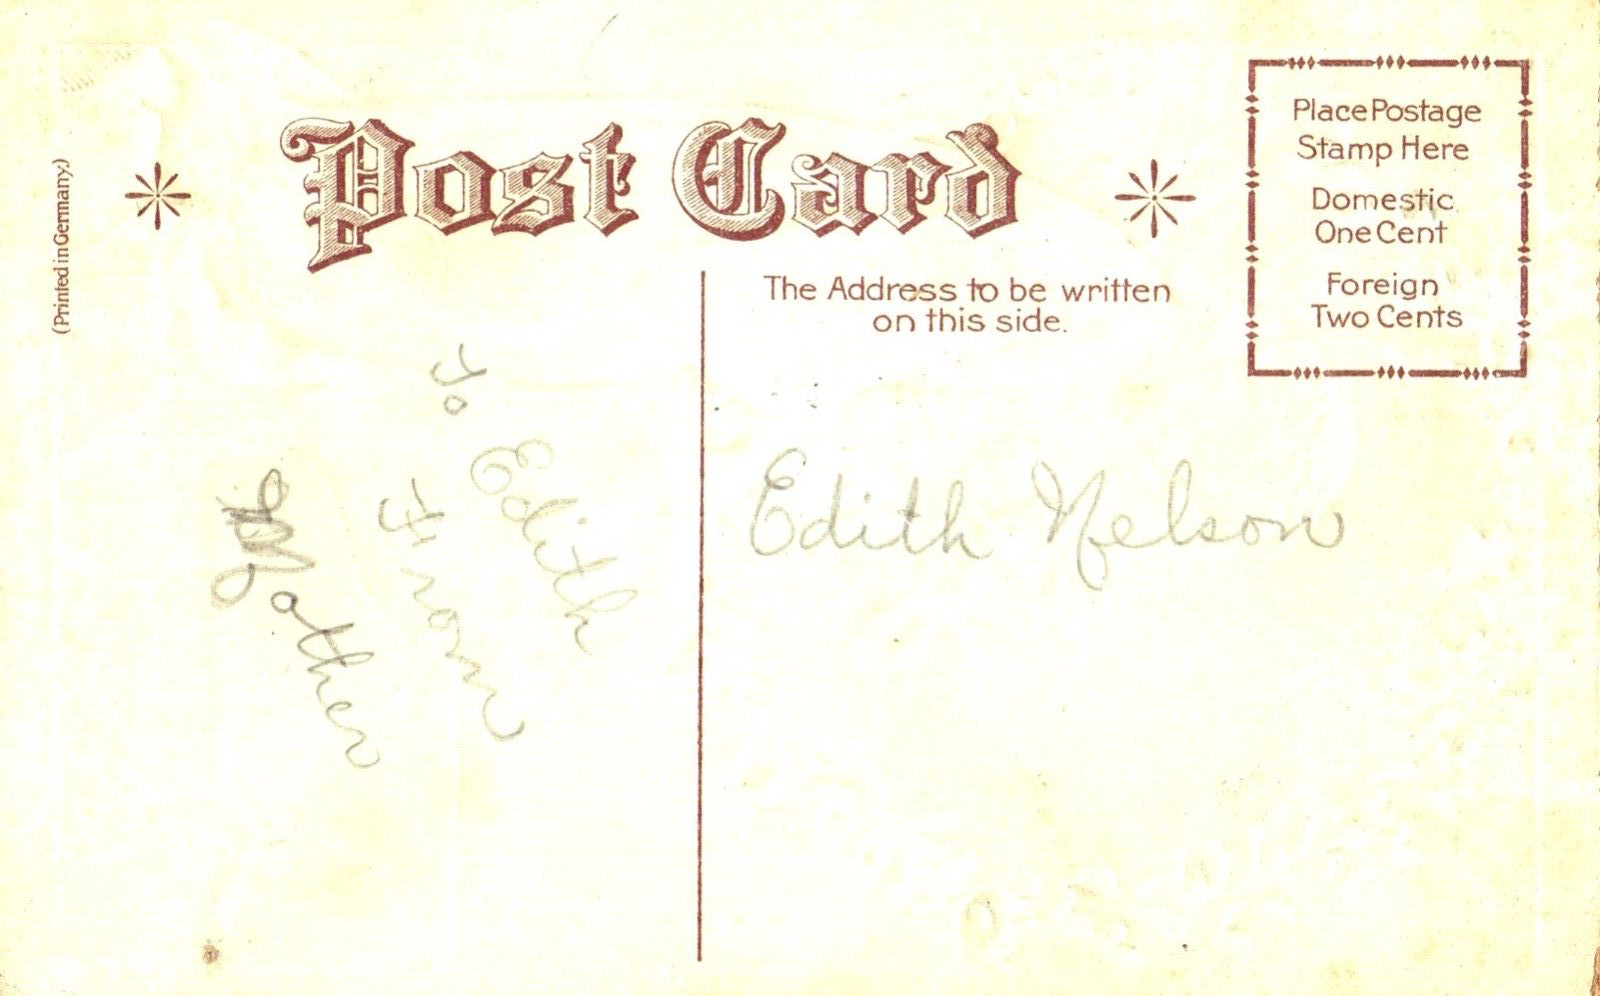 (Printed in Germany.)
Post Card
Place Postage
Stamp Here
Domestic
One Cent
Foreign
Two Cents
The Address to be written
on this side.
To Edith
From
Mother
Edith Nelson